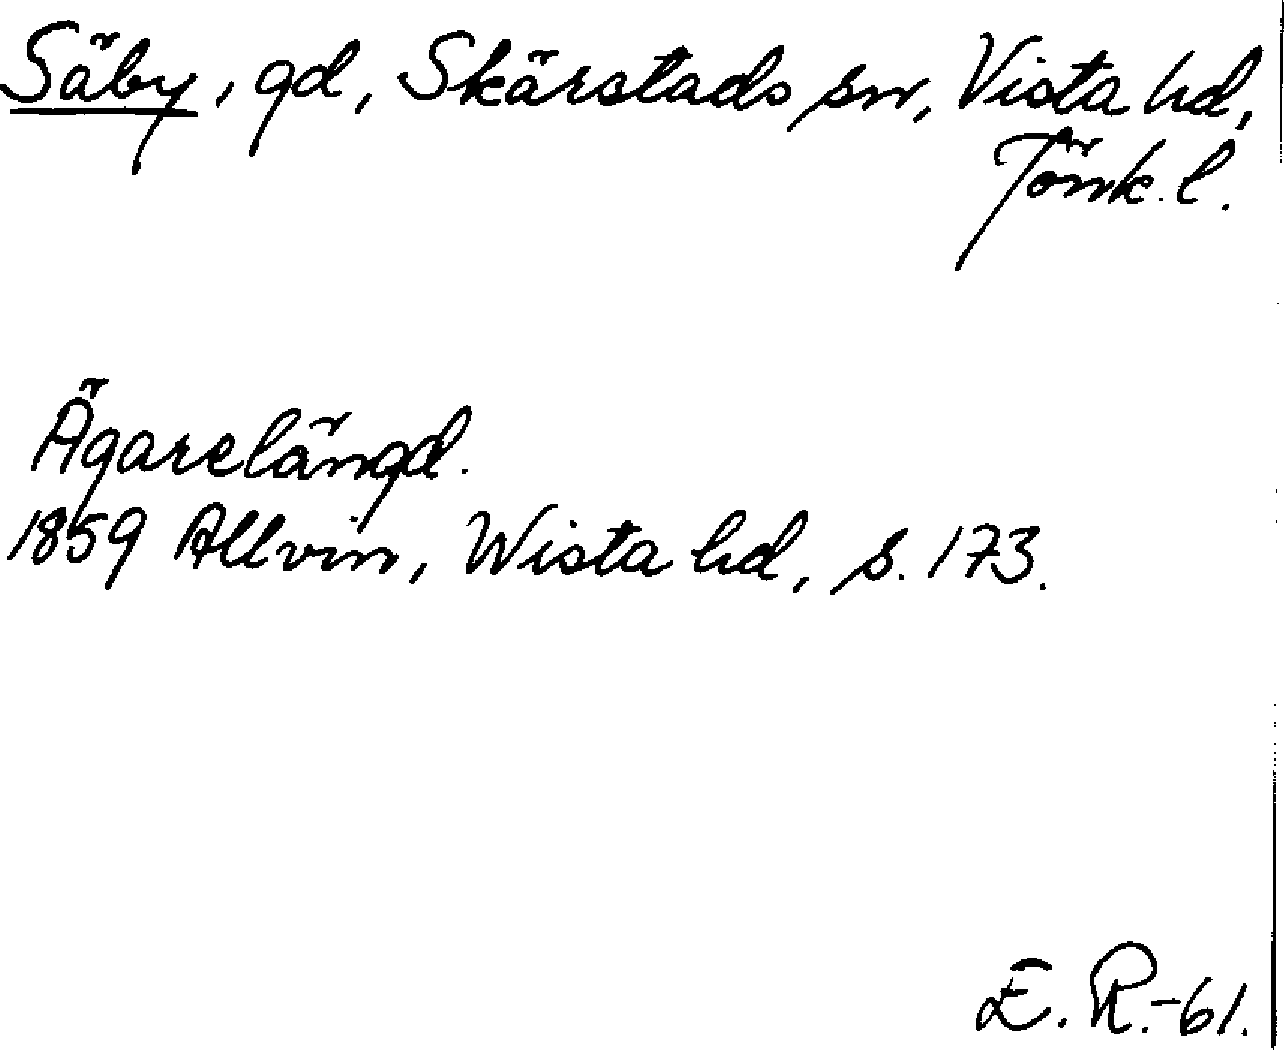 Säby, gd, Skärstads sn, Vista hd,
Jönk. l.
Ägarelängd.
1859 Allvin, Wista hd, s. 173.
E. R.-61.